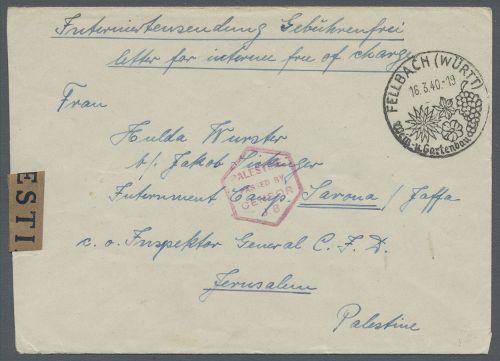 Interniertensendung Gebührenfrei
letter for internee free of charge
FELLBACH (WÜRTT)
16.3.40.-19
Wein- u. Gartenbau
Frau
Hulda Wurster
b/ Jakob
PALESTINE
PASSED BY
CENSOR
Internment Camp. Sarona / Jaffa
ESTI
c. o. Inspektor General C. I. D.
Jerusalem
Palestine